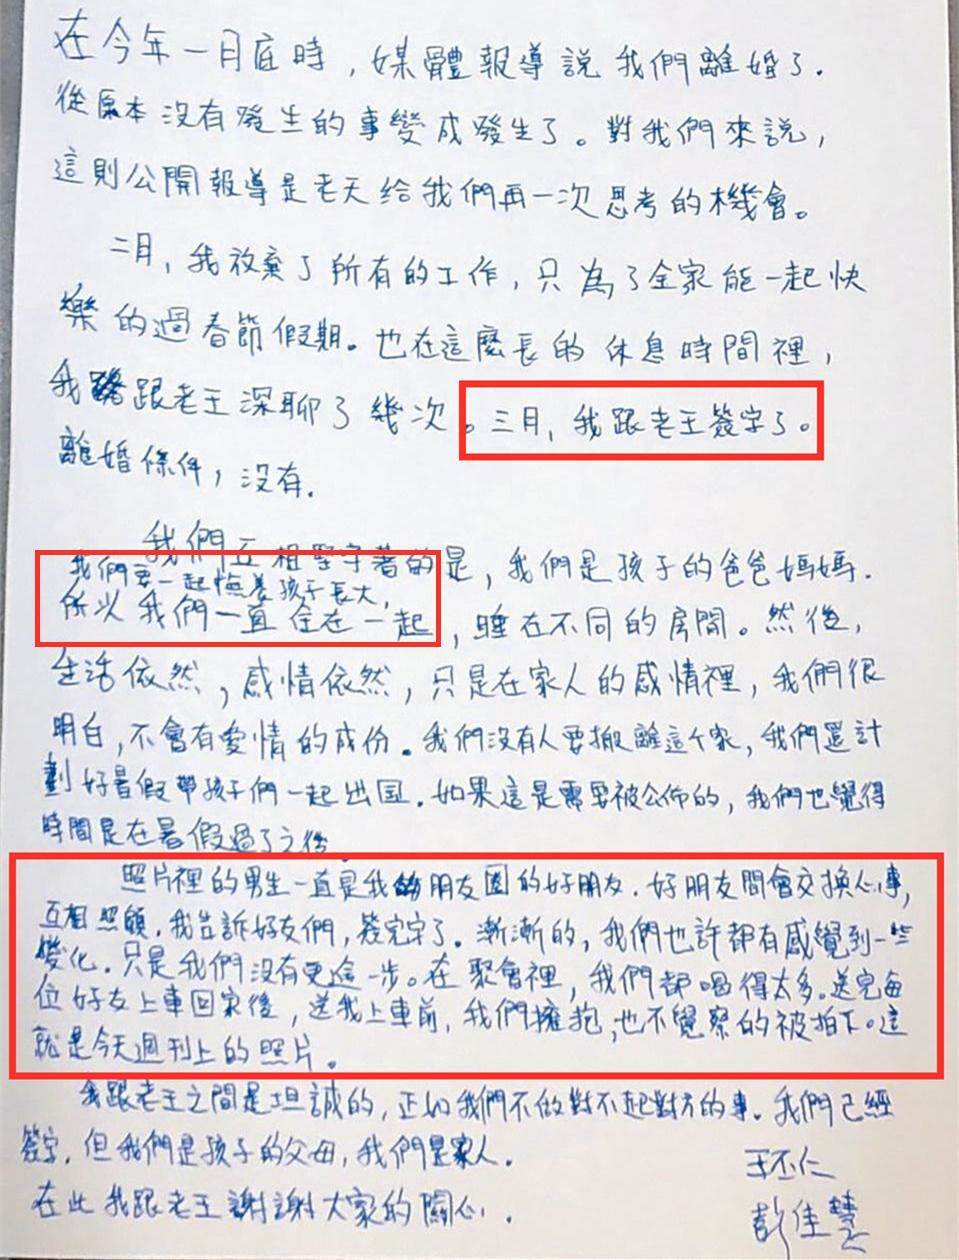 在今年一月底時，媒體報導說我們離婚了.
從原本沒有發生的事變成發生了。對我們來說，
這則公開報導是老天給我們再一次思考的機會。
二月，我放棄了所有的工作，只為了全家能一起快
樂的過春節假期。也在這麼長的休息時間裡，
我跟老王深聊了幾次。三月，我跟老王簽字了。
離婚條件，沒有.
我們互相堅守著的是，我們是孩子的爸爸媽媽.
我們要一起撫養孩子長大，
所以我們一直住在一起，睡在不同的房間。然後，
生活依然，感情依然，只是在家人的感情裡，我們很
明白，不會有愛情的成份。我們沒有人要搬離這个家，我們還計
劃好暑假帶孩子們一起出国.如果這是需要被公佈的，我們也覺得
時間是在暑假過了之後.
照片裡的男生一直是我的朋友圈的好朋友.好朋友間會交換心事，
互相照顧.我告訴好友們，簽完字了.漸漸的，我們也許都有感覺到一些
變化.只是我們沒有更進一步。在聚會裡，我們都喝得太多。送完每
位好友上車回家後，送我上車前，我們擁抱，也不覺察的被拍下。這
就是今天週刊上的照片。
我跟老王之間是坦誠的，正如我們不做對不起對方的事.我們已經
簽字，但我們是孩子的父母，我們是家人.
在此我跟老王謝謝大家的關心.
王丕仁
彭佳慧